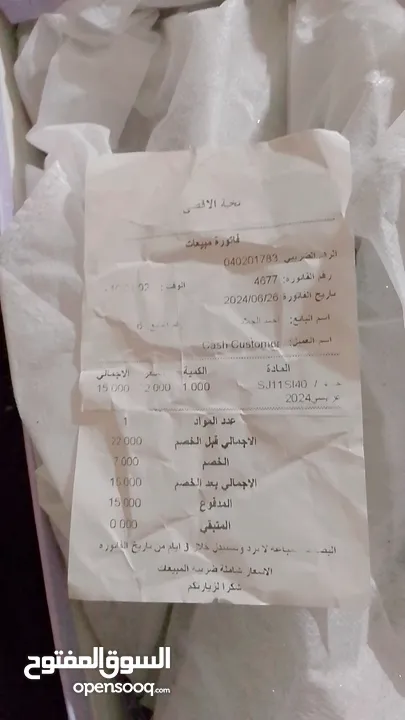 نخبة الاقصى
فاتورة مبيعات
الرقم الضريبي 040201783
رقم الفاتورة: 4677 الوقت:
تاريخ الفاتورة 2024/06/26
اسم البائع:
اسم العميل: Cash Customer
المادة الكمية الاجمالي
SJ11SI40 / 1.000 15.000
2024
عدد المواد 1
الاجمالي قبل الخصم 22.000
الخصم 7.000
الاجمالي بعد الخصم 15.000
المدفوع 15.000
المتبقي 0.000
لا ترد وتستبدل خلال ايام من تاريخ الفاتورة
الاسعار شاملة ضريبة المبيعات
شكرا لزيارتكم
السوق المفتوح
opensooq.com